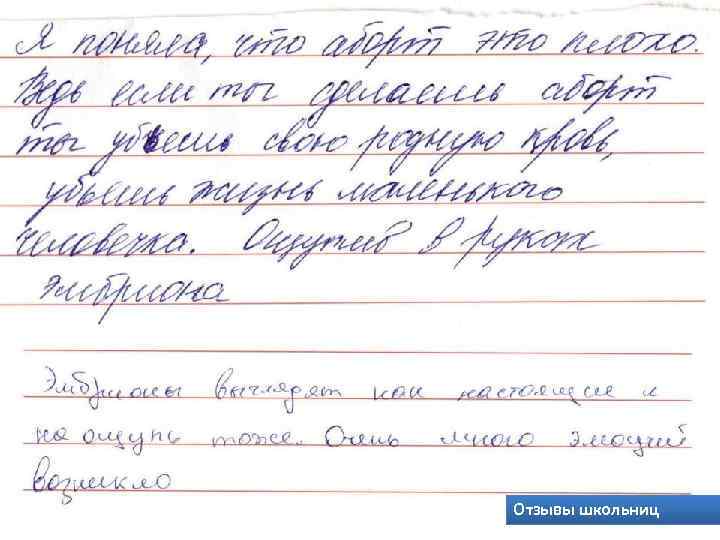 Я поняла, что аборт это плохо.
Ведь если ты сделаешь аборт
ты убьешь свою родную кровь,
убьешь жизнь маленького
человечка. Ощутив в руках
эмбриона
Эмбрионы выглядят как настоящие и
на ощупь тоже. Очень много эмоций
возникло
Отзывы школьниц